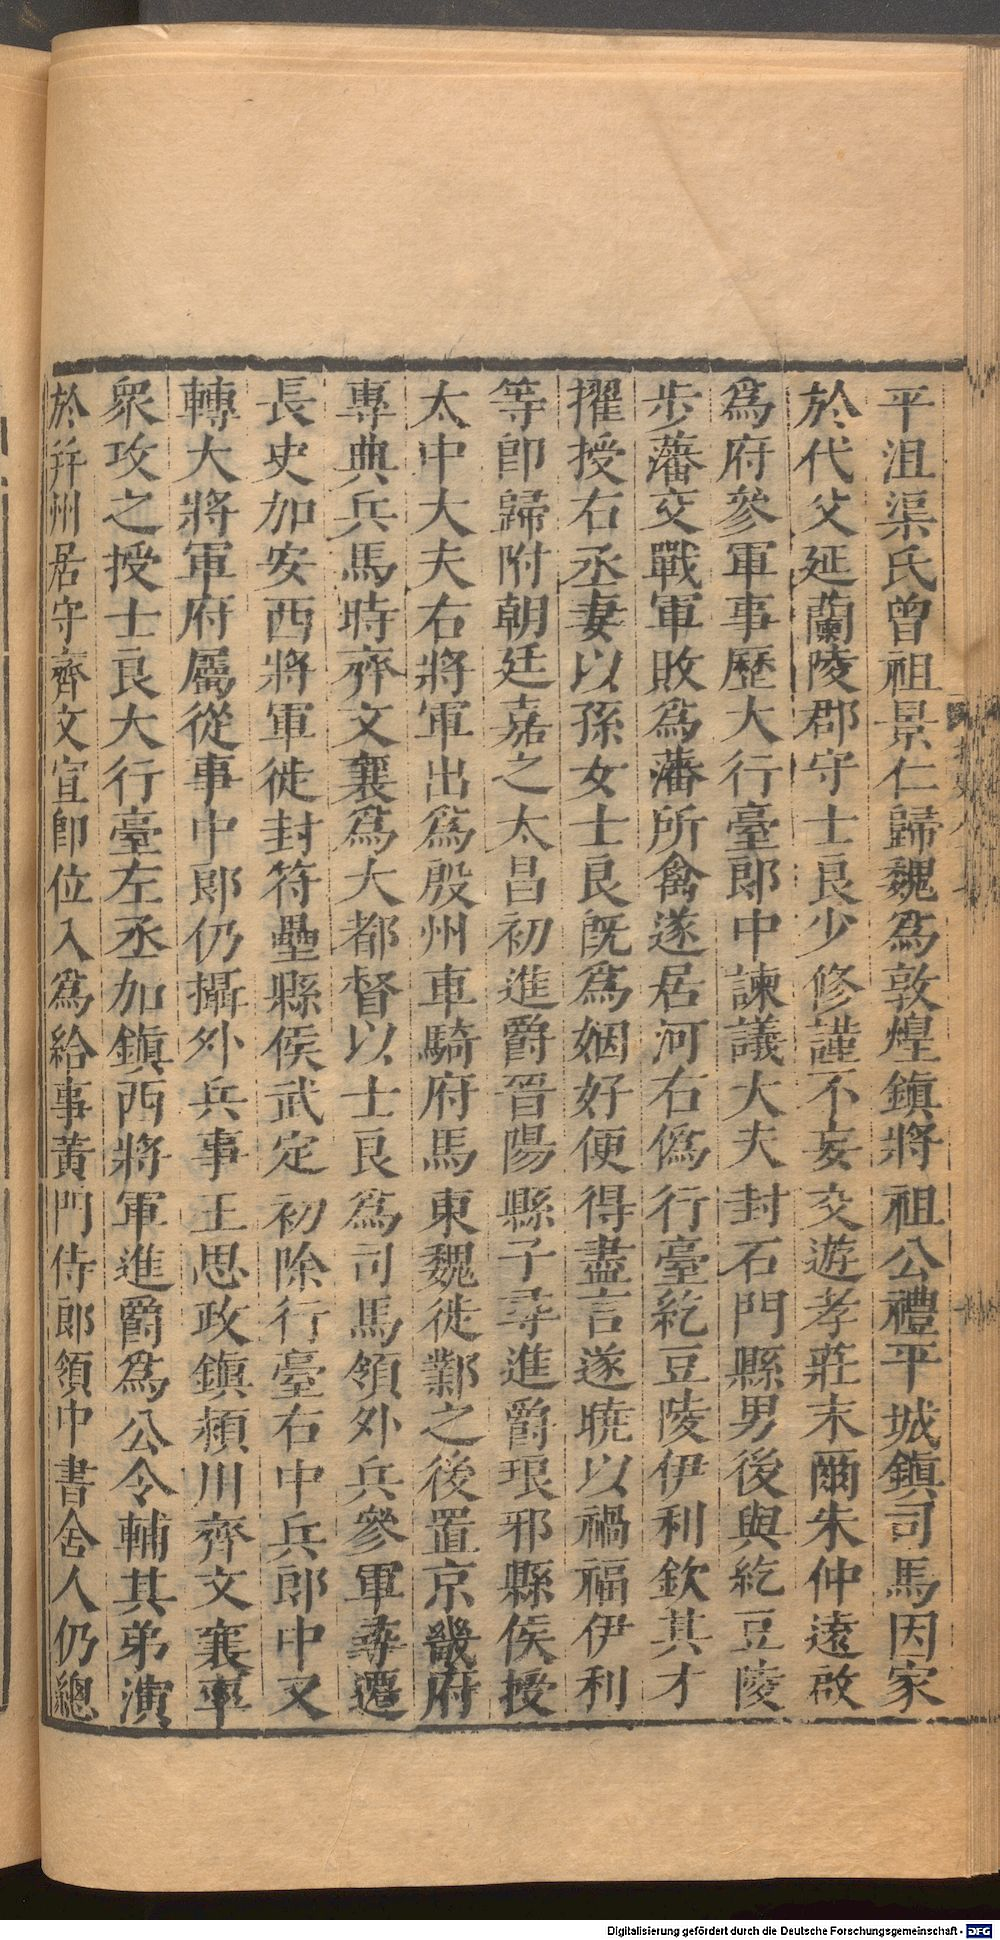 平沮渠氏曾祖景仁歸魏爲敦煌鎭將祖公禮平城鎭司馬因家
於代父延蘭陵郡守士良少修謹不妄交遊孝莊末爾朱仲遠啟
爲府參軍事歷大行臺郎中諫議大夫封石門縣男後與紇豆陵
步藩交戰軍敗爲藩所禽遂居河右僞行臺紇豆陵伊利欽其才
擢授右丞妻以孫女士良旣爲姻好便得盡言遂曉以禍福伊利
等卽歸附朝廷嘉之太昌初進爵晉陽縣子尋進爵琅邪縣侯授
太中大夫右將軍出爲殷州車騎府司馬東魏徙鄴之後置京畿府
專典兵馬時齊文襄爲大都督以士良爲司馬領外兵參軍尋遷
長史加安西將軍徙封符壘縣侯武定初除行臺右中兵郎中又
轉大將軍府屬從事中郎仍攝外兵事王思政鎭潁川齊文襄率
衆攻之授士良大行臺左丞加鎭西將軍進爵爲公令輔其弟演
於幷州居守齊文宣卽位入爲給事黃門侍郎領中書舍人仍總
Digitalisierung gefördert durch die Deutsche Forschungsgemeinschaft - DFG